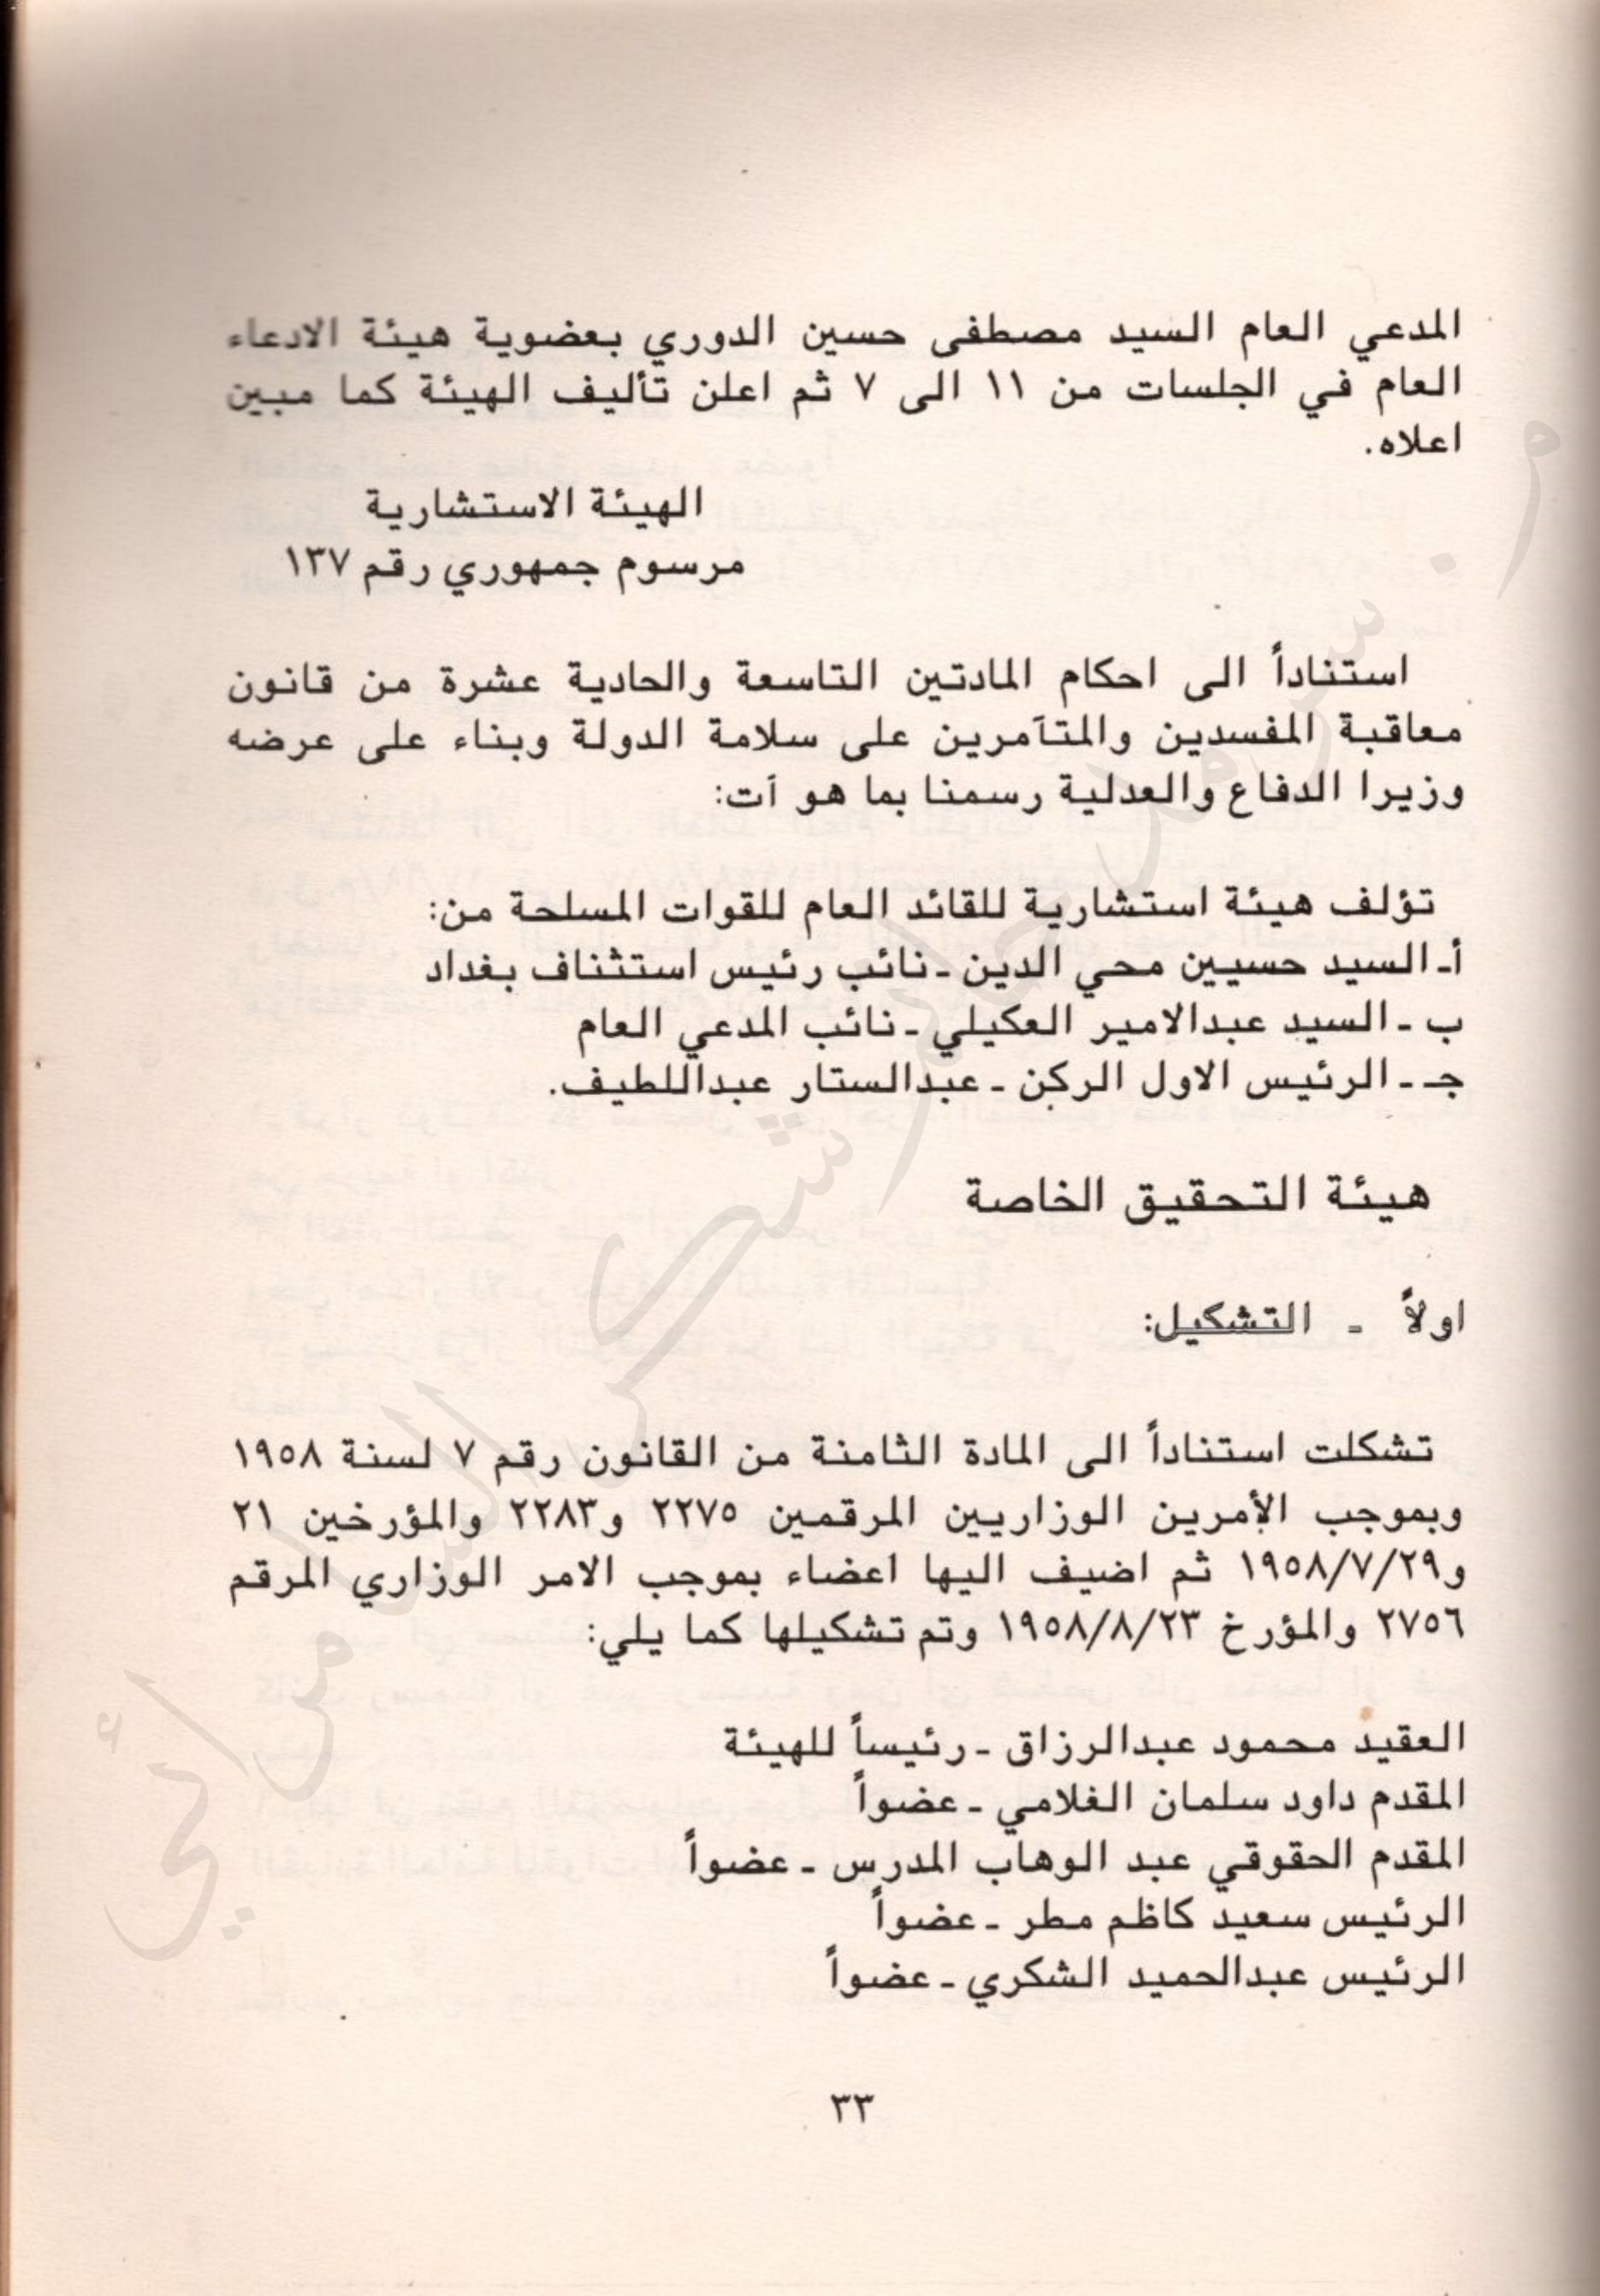 المدعي العام السيد مصطفى حسين الدوري بعضوية هيئة الادعاء
العام في الجلسات من ١١ الى ٧ ثم اعلن تأليف الهيئة كما مبين
اعلاه.
الهيئة الاستشارية
مرسوم جمهوري رقم ١٣٧
استناداً الى احكام المادتين التاسعة والحادية عشرة من قانون
معاقبة المفسدين والمتآمرين على سلامة الدولة وبناء على عرضه
وزيرا الدفاع والعدلية رسمنا بما هو آت:
تؤلف هيئة استشارية للقائد العام للقوات المسلحة من:
أ- السيد حسيين محي الدين - نائب رئيس استئناف بغداد
ب - السيد عبدالامير العكيلي - نائب المدعي العام
جـ - الرئيس الاول الركن - عبدالستار عبداللطيف.
هيئة التحقيق الخاصة
اولاً - التشكيل:
تشكلت استناداً الى المادة الثامنة من القانون رقم ٧ لسنة ١٩٥٨
وبموجب الأمرين الوزاريين المرقمين ٢٢٧٥ و٢٢٨٣ والمؤرخين ٢١
و١٩٥٨/٧/٢٩ ثم اضيف اليها اعضاء بموجب الامر الوزاري المرقم
٢٧٥٦ والمؤرخ ١٩٥٨/٨/٢٣ وتم تشكيلها كما يلي:
العقيد محمود عبدالرزاق - رئيساً للهيئة
المقدم داود سلمان الغلامي - عضواً
المقدم الحقوقي عبد الوهاب المدرس - عضواً
الرئيس سعيد كاظم مطر - عضواً
الرئيس عبدالحميد الشكري - عضواً
٣٣
م. سرمد حاتم شكر السامرائي